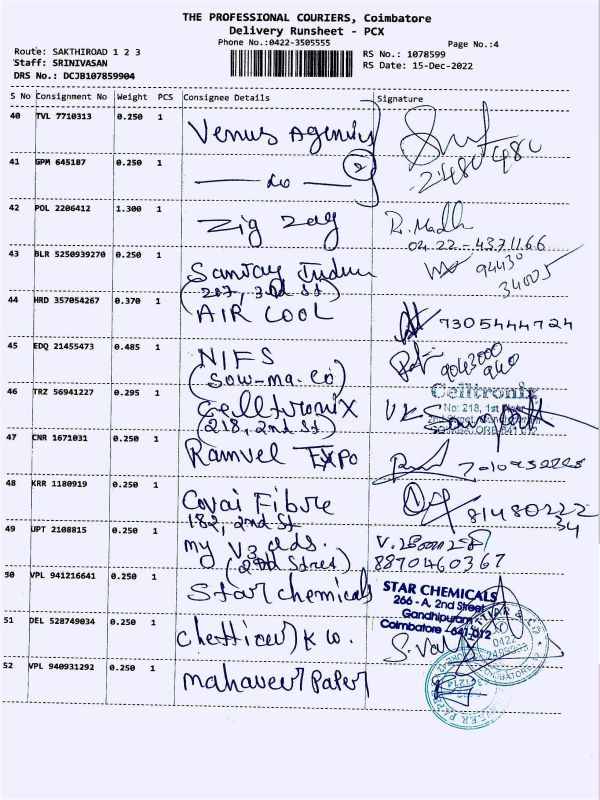 THE PROFESSIONAL COURIERS, Coimbatore
Delivery Runsheet - PCX
Phone No.:0422-3505555
Page No.:4
Route: SAKTHIROAD 1 2 3
RS No.: 1078599
Staff: SRINIVASAN
RS Date: 15-Dec-2022
DRS No.: DCJB107859904
S No Consignment No Weight PCS Consignee Details Signature
40 TVL 7710313 0.250 1 Venus Agencies
2480480
41 GPM 645187 0.250 1 do 2
42 POL 2206412 1.300 1 Zig Zag R. Madh
0422-4371166
43 BLR 5250939270 0.250 1 Sanjay Indus 94430
(207, 3rd St) 34005
44 HRD 357054267 0.370 1 AIR COOL 7305444724
45 EDQ 21455473 0.485 1 NIFS 9043000
(Sow-ma.co) 940
46 TRZ 56941227 0.295 1 Celltronix
(218, 2nd St)
Celltronix
No: 218, 1st
COIMBATORE 641 012
47 CNR 1671031 0.250 1 Ramvel Expo
48 KRR 1180919 0.250 1 Covai Fibre 81480222
182, 2nd St 34
49 UPT 2108815 0.250 1 my V3 ads.
(2nd Street) 8870460367
50 VPL 941216641 0.250 1 Star chemicals
STAR CHEMICALS
266 - A, 2nd Street
Gandhipuram
Coimbatore - 641 012
51 DEL 528749034 0.250 1 Chettiar K Co.
0422
52 VPL 940931292 0.250 1 mahaveer paper